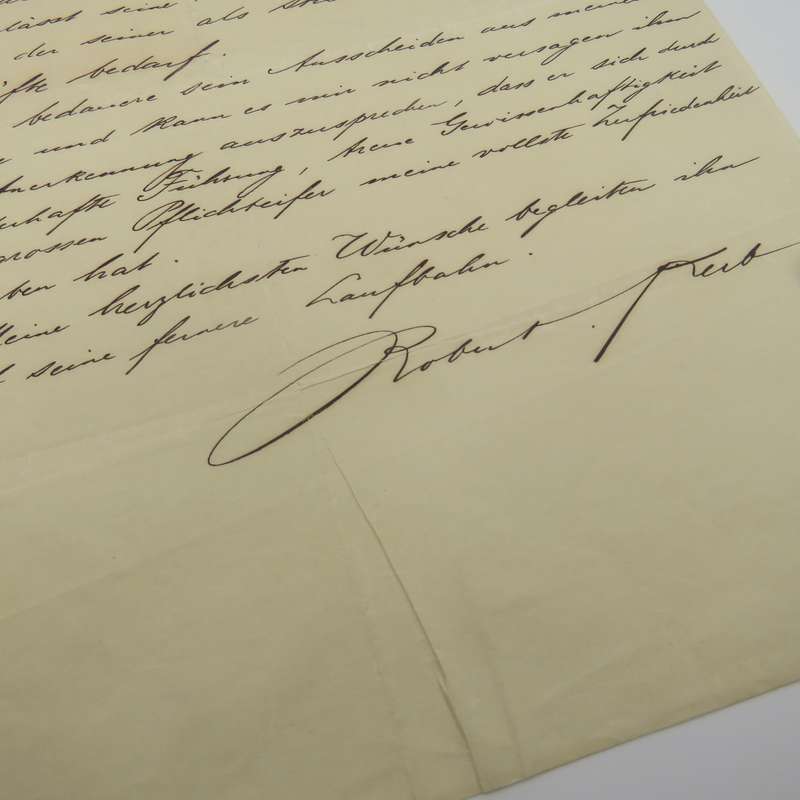 lässt seine
der seiner als
bedarf.
bedauere sein Ausscheiden aus meinem
und kann es mir nicht versagen ihm
Anerkennung auszusprechen, dass er sich durch
Führung, treue Gewissenhaftigkeit
grossen Pflichteifer meine vollste Zufriedenheit
ben hat.
Meine herzlichsten Wünsche begleiten ihn
seine fernere Laufbahn.
Robert